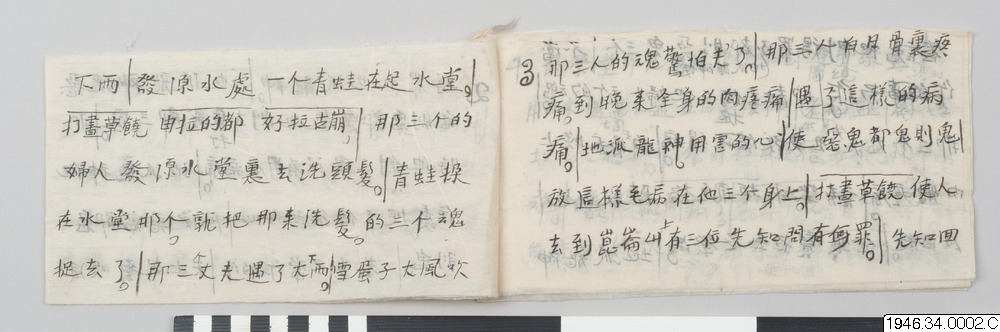 下雨發原水處一个青蛙在起水堂。
打畫草饒 由拉的都 好拉古崩，那三个的
婦人發原水堂裏去洗頭髮。青蛙探
在水堂那个。就把那来洗髮。的三个魂
捉去了。那三个丈夫遇了大雨。雪蛋子大風吹
3
那三人的魂驚怕失了。那三人的身骨裏疼
痛。到晚来全身的肉疼痛遇了這樣的病
痛。地派龍神用害的心使惡鬼都鬼則鬼
放這樣毛病在他三个身上。打畫草饒使人
去到崑崙山上有三位先知問有何罪。先知回
1946.34.0002 C